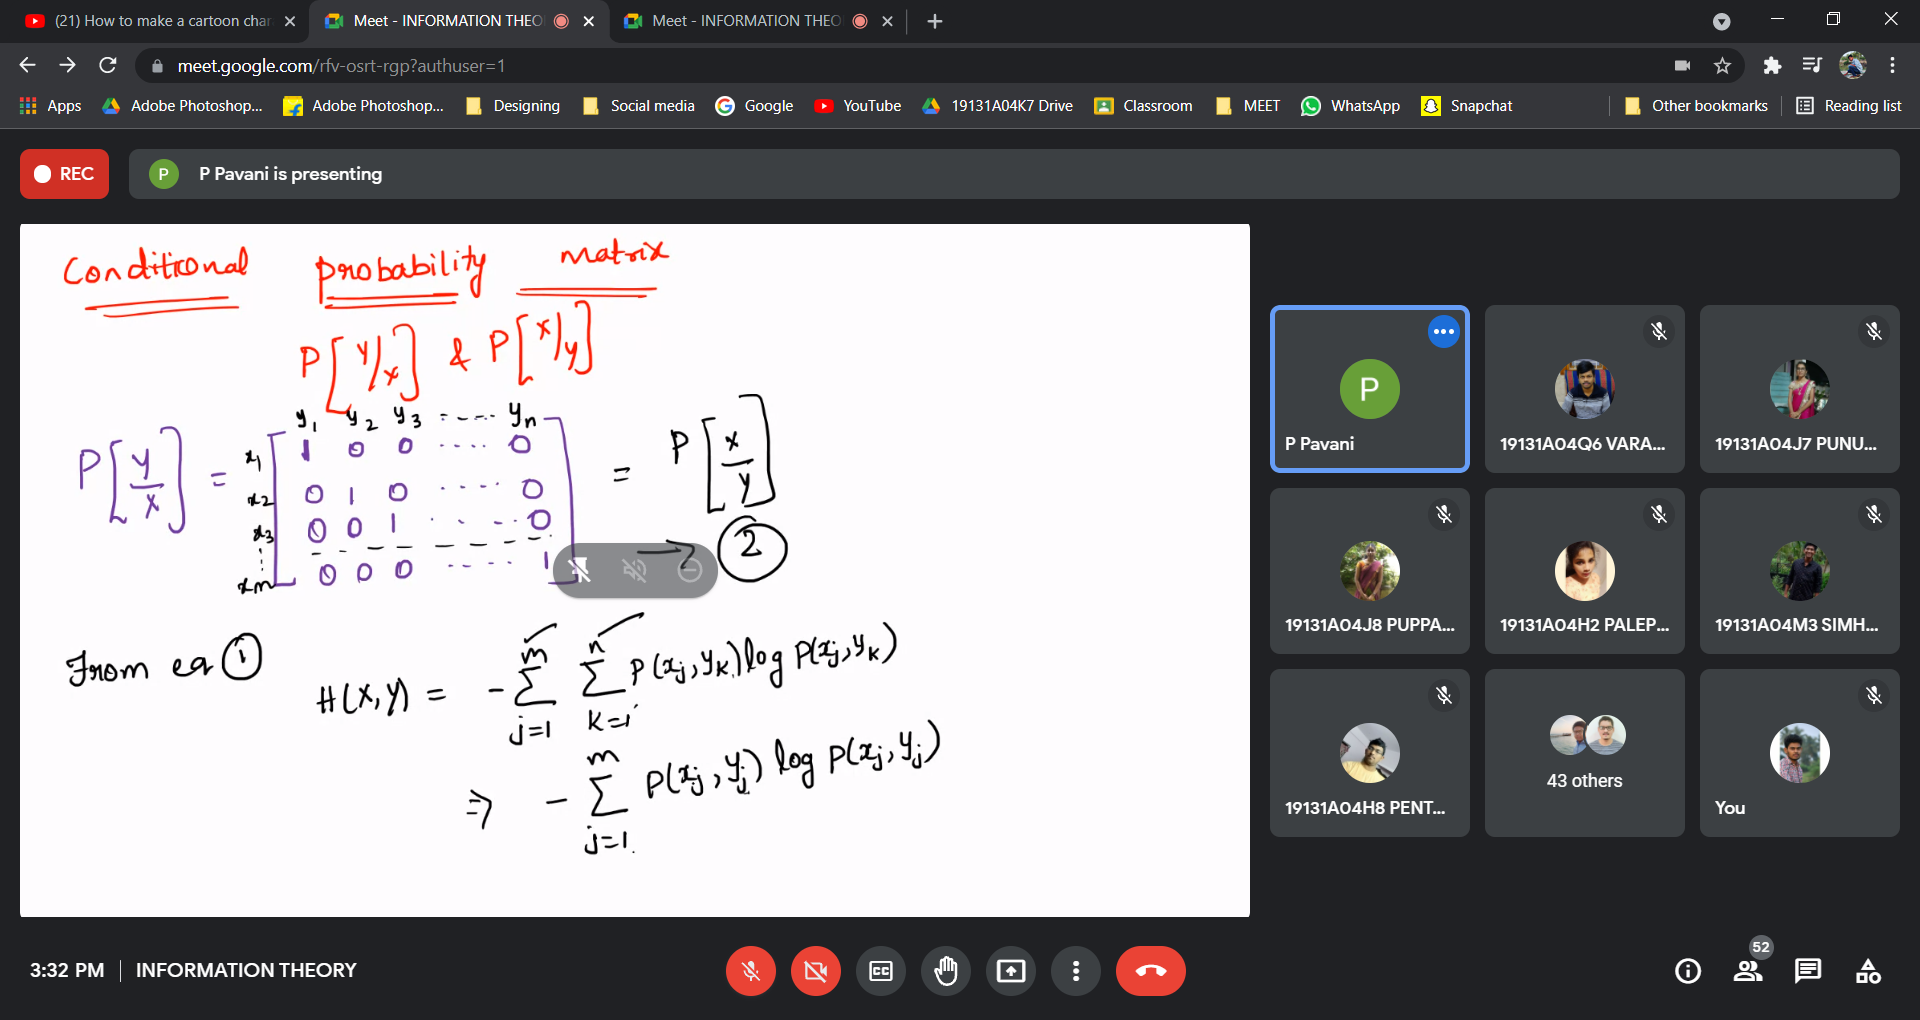 (21) How to make a cartoon char
Meet - INFORMATION THEO
Meet - INFORMATION THEO
meet.google.com/rfv-osrt-rgp?authuser=1
Apps Adobe Photoshop... Adobe Photoshop... Designing Social media Google YouTube 19131A04K7 Drive Classroom MEET WhatsApp Snapchat Other bookmarks Reading list
REC
P P Pavani is presenting
Conditional probability matrix
P[Y/X] & P[X/Y]
y1 y2 y3 ..... yn
P[Y/X] = x1 1 0 0 .... 0 = P[X/Y]
x2 0 1 0 ..... 0
x3 0 0 1 ..... 0
xm 0 0 0 ..... 1 → 2
From eq 1
H(X,Y) = - m Σ j=1 n Σ k=1 P(xj,yk) log P(xj,yk)
⇒ - m Σ j=1 P(xj,yj) log P(xj,yj)
P
P Pavani
19131A04Q6 VARA...
19131A04J7 PUNU...
19131A04J8 PUPPA...
19131A04H2 PALEP...
19131A04M3 SIMH...
19131A04H8 PENT...
43 others
You
3:32 PM | INFORMATION THEORY
CC
52